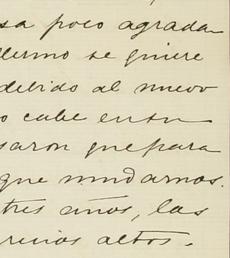 sa poco agrada
llermo se quiere
debido al nuevo
o cabe en su
saron que para
que mudarnos.
tres años, las
recios altos.